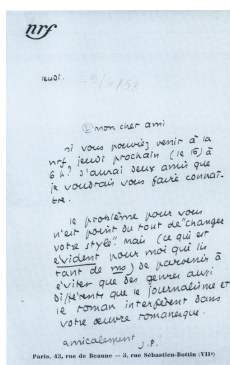 nrf
jeudi.
mon cher ami
si vous pouviez venir à la
nrf, jeudi prochain (le 16) à
6 h? J'aurai deux amis que
je voudrais vous faire connaî-
tre.
le problème pour vous
n'est point du tout de "changer
votre style" mais (ce qui est
évident pour moi qui lis
tant de ms) de parvenir à
éviter que des genres aussi
différents que le journalisme et
le roman interfèrent dans
votre œuvre romanesque.
amicalement
J.P.
Paris, 43, rue de Beaune — 5, rue Sébastien-Bottin (VIIᵉ)